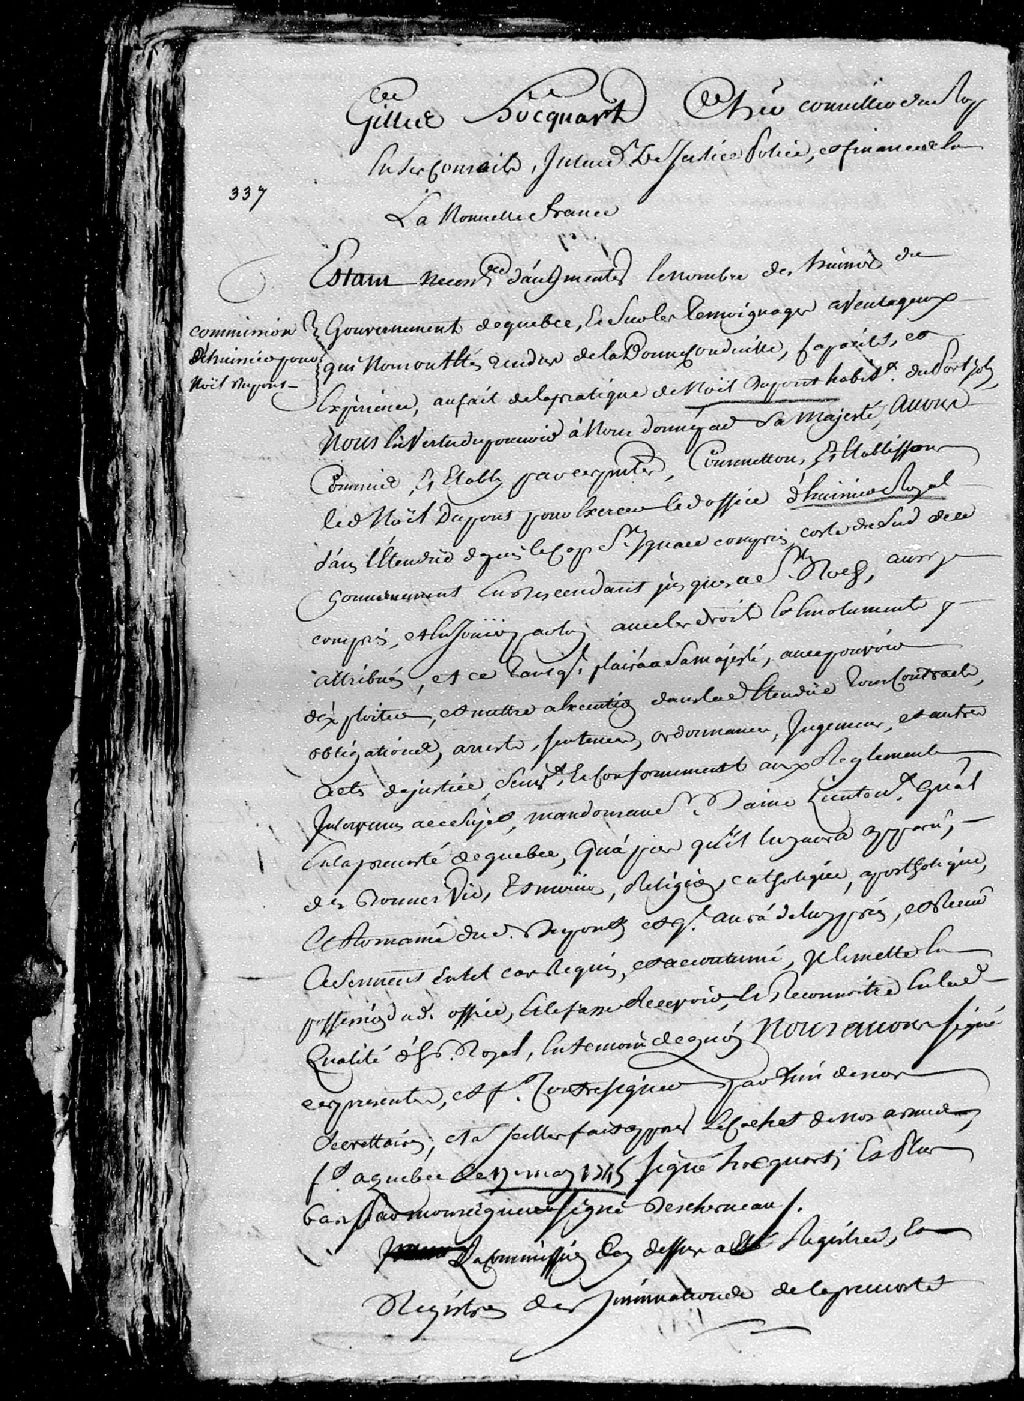 Gilles Hocquart Cher conseiller du Roy
En ses Conseils, Intend.t De Justice Police, et finances de la
337
La Nouvelle france
Estant necess.re d'augmenter le nombre des huissiers du
commission
d'huissier pour
Noël Dupont
Gouvernement de quebec, Et Sur les Temoignages aventageux
qui Nous ont Etés rendus de la Bonne Conduitte, capacité, et
Experience, au fait de la pratique de Noël Dupont habit.t du Port joly
Nous En Vertu du pouvoir à Nous donné par Sa Majesté, Avons
Commis, Et Etably par ces pntes, Commettons, Et Etablissons
led Noël Dupont pour Exercer led office d'huissier Royal
dans l'Etendüe depuis le Cap S.t Ignace compris, coste du Sud de ce
Gouvernement En descendant jusques a S.t Roch, aussy
compris, et En Joüir aux droits Et Emoluments y
attribués, et ce tant q'il plaira a Sa Majesté, avec pouvoir
d'Exploiter, et mettre a Execution dans lad Etendüe tous Contracts,
obligations, arrests, sentences, ordonnances, Jugemens, et autres
actes de justice, Se Conformement aux Reglements
Intervenus a ce Sujet, mandons au S.r Daine Lieuten.t Gnâl
En la prevosté de quebec, Qu'apres qu'il luy aura apparu,
des Bonnes Vie, Et moeurs, Religion catholique, apostholique,
Et Romaine dud. Dupont et q'il aura de luy pris, et Receu
le Serment En tel cas Requis, et accoutumé, Il le mette En
possession dud. office, Et le fasse Recevoir, Et Reconnoitre En lad
Qualité d'h.r Royal, En temoin de quoy Nous avons signé
ces presentes, et f.t Contresigner par l'un de nos
Secrettaires, et a Icelles fait apposer le Cachet de nos armes,
f.t a quebec le 17 may 1745 signé hocquart, Et Plus
bas Par monseigneur signé Deschenaux.
La Commission Cy dessus a Eté Registrée, Es
Registres des Insinuations de la prevosté